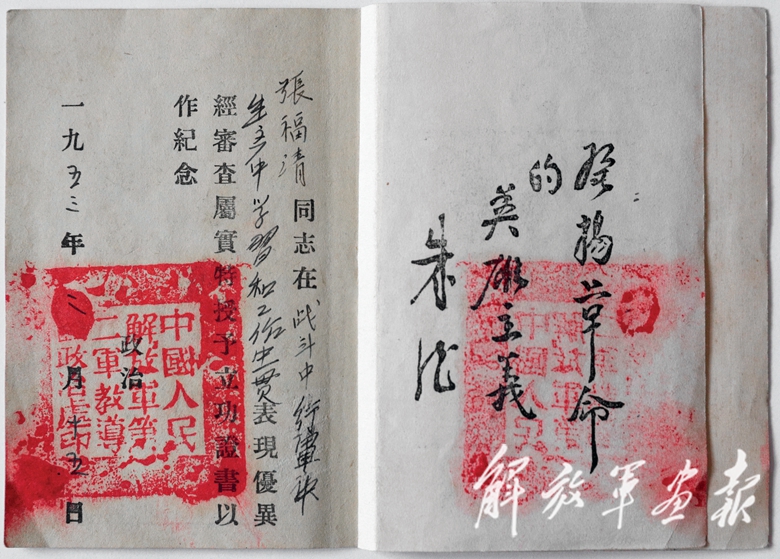 發揚革命
的
英雄主義
朱德
張福清同志在战斗中行軍
生产中学習和工作中一贯表現優異
經審查屬實特授予立功證書以
作紀念
政治
一九五三年月五日
中國人民
解放軍第
二軍教導
政治處印
解放軍画报